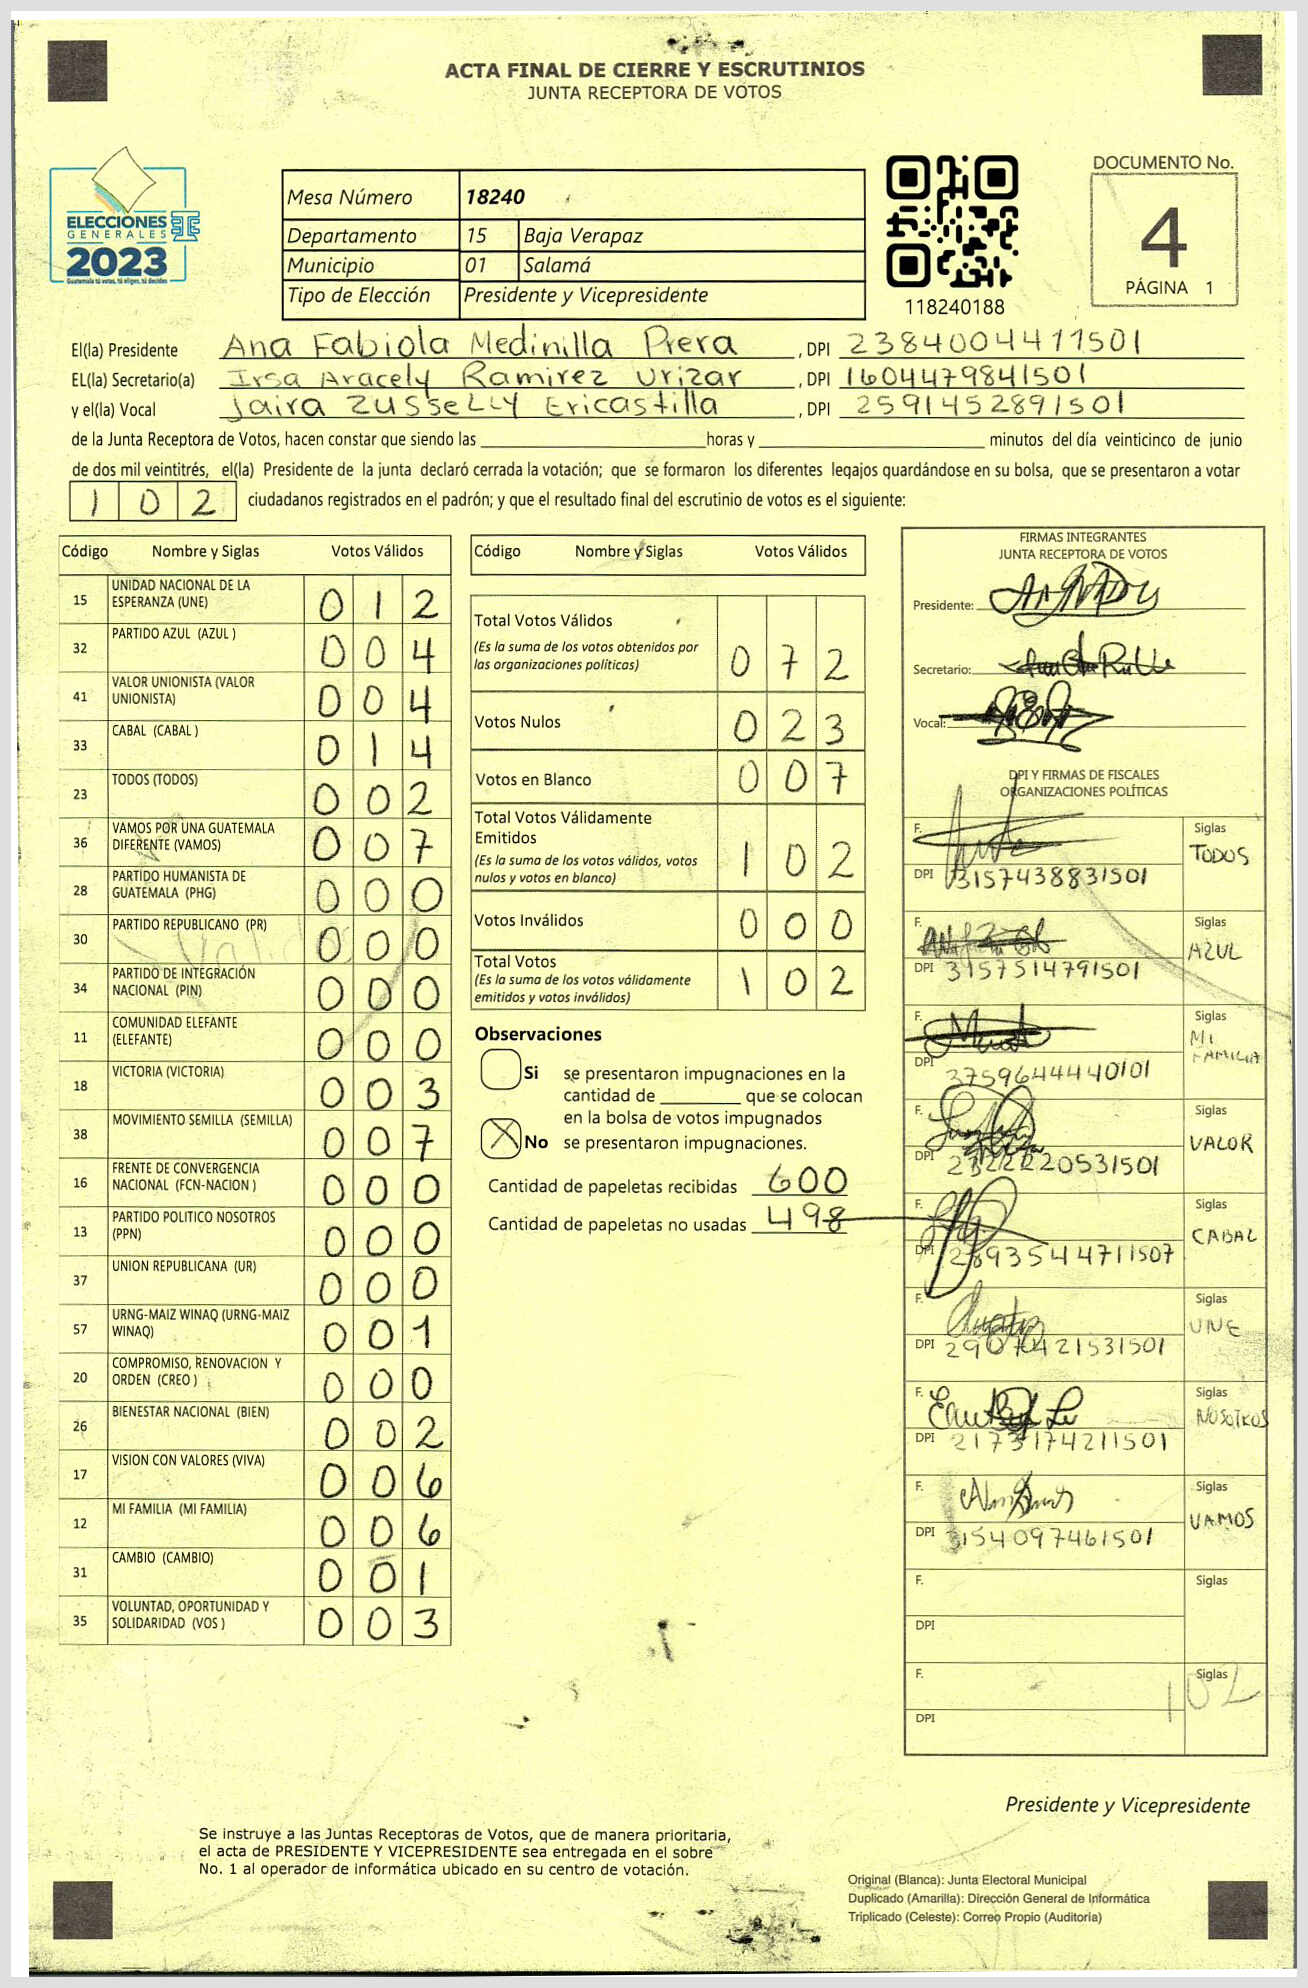 ACTA FINAL DE CIERRE Y ESCRUTINIOS
JUNTA RECEPTORA DE VOTOS
ELECCIONES
GENERALES
2023
Guatemala tú votas, tú eliges, tú decides
Mesa Número 18240
Departamento 15 Baja Verapaz
Municipio 01 Salamá
Tipo de Elección Presidente y Vicepresidente
118240188
DOCUMENTO No.
4
PÁGINA 1
El(la) Presidente Ana Fabiola Medinilla Prera , DPI 2384004411501
EL(la) Secretario(a) Irsa Aracely Ramirez Urizar , DPI 1604479841501
y el(la) Vocal Jaira Zusselly Ericastilla , DPI 2591452891501
de la Junta Receptora de Votos, hacen constar que siendo las horas y minutos del día veinticinco de junio
de dos mil veintitrés, el(la) Presidente de la junta declaró cerrada la votación; que se formaron los diferentes legajos guardándose en su bolsa, que se presentaron a votar
102 ciudadanos registrados en el padrón; y que el resultado final del escrutinio de votos es el siguiente:
Código Nombre y Siglas Votos Válidos
15 UNIDAD NACIONAL DE LA ESPERANZA (UNE) 012
32 PARTIDO AZUL (AZUL ) 004
41 VALOR UNIONISTA (VALOR UNIONISTA) 004
33 CABAL (CABAL ) 014
23 TODOS (TODOS) 002
36 VAMOS POR UNA GUATEMALA DIFERENTE (VAMOS) 007
28 PARTIDO HUMANISTA DE GUATEMALA (PHG) 000
30 PARTIDO REPUBLICANO (PR) 000
34 PARTIDO DE INTEGRACIÓN NACIONAL (PIN) 000
11 COMUNIDAD ELEFANTE (ELEFANTE) 000
18 VICTORIA (VICTORIA) 003
38 MOVIMIENTO SEMILLA (SEMILLA) 007
16 FRENTE DE CONVERGENCIA NACIONAL (FCN-NACION ) 000
13 PARTIDO POLITICO NOSOTROS (PPN) 000
37 UNION REPUBLICANA (UR) 000
57 URNG-MAIZ WINAQ (URNG-MAIZ WINAQ) 001
20 COMPROMISO, RENOVACION Y ORDEN (CREO ) 000
26 BIENESTAR NACIONAL (BIEN) 002
17 VISION CON VALORES (VIVA) 006
12 MI FAMILIA (MI FAMILIA) 006
31 CAMBIO (CAMBIO) 001
35 VOLUNTAD, OPORTUNIDAD Y SOLIDARIDAD (VOS ) 003
Código Nombre y Siglas Votos Válidos
Total Votos Válidos 072
(Es la suma de los votos obtenidos por
las organizaciones políticas)
Votos Nulos 023
Votos en Blanco 007
Total Votos Válidamente
Emitidos 102
(Es la suma de los votos válidos, votos
nulos y votos en blanco)
Votos Inválidos 000
Total Votos 102
(Es la suma de los votos válidamente
emitidos y votos inválidos)
Observaciones
Si se presentaron impugnaciones en la
cantidad de que se colocan
en la bolsa de votos impugnados
X No se presentaron impugnaciones.
Cantidad de papeletas recibidas 600
Cantidad de papeletas no usadas 498
FIRMAS INTEGRANTES
JUNTA RECEPTORA DE VOTOS
Presidente:
Secretario:
Vocal:
DPI Y FIRMAS DE FISCALES
ORGANIZACIONES POLÍTICAS
F. Siglas
TODOS
DPI 3157438831501
F. Siglas
AZUL
DPI 3157514791501
F. Siglas
MI FAMILIA
DPI 3759644440101
F. Siglas
VALOR
DPI
F. Siglas
CABAL
DPI 2893544711507
F. Siglas
UNE
DPI
F. Siglas
NOSOTROS
DPI 2173174211501
F. Siglas
VAMOS
DPI 3154097461501
F. Siglas
DPI
F. Siglas
102
DPI
Presidente y Vicepresidente
Se instruye a las Juntas Receptoras de Votos, que de manera prioritaria,
el acta de PRESIDENTE Y VICEPRESIDENTE sea entregada en el sobre
No. 1 al operador de informática ubicado en su centro de votación.
Original (Blanca): Junta Electoral Municipal
Duplicado (Amarilla): Dirección General de Informática
Triplicado (Celeste): Correo Propio (Auditoría)